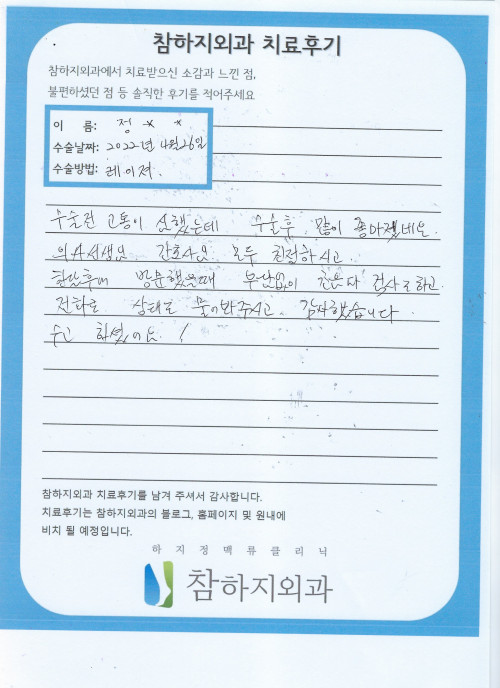 참하지외과 치료후기
참하지외과에서 치료받으신 소감과 느낀 점,
불편하셨던 점 등 솔직한 후기를 적어주세요
이 름: 정 * *
수술날짜: 2022년 4월 26일
수술방법: 레이져
수술전 고통이 심했는데 수술후 많이 좋아졌네요.
의사선생님 간호사님 모두 친절하시고
방문했을때 부담없이 검사도하고
전화로 상태도 물어봐주시고 감사했습니다
수고 하셨어요 !
참하지외과 치료후기를 남겨 주셔서 감사합니다.
치료후기는 참하지외과의 블로그, 홈페이지 및 원내에
비치 될 예정입니다.
하지정맥류클리닉
참하지외과